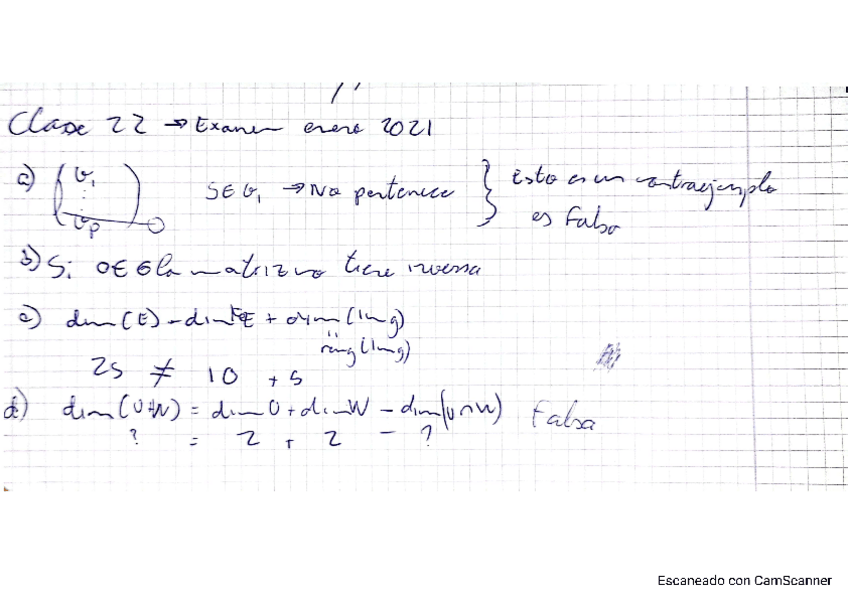 Clase 22 → Examen enero 2021
a) (v₁ ⋮ vₚ) SEG, → No pertenece } Esto es un contraejemplo
es Falso
b) Si 0∈G la matriz no tiene inversa
c) dim(E) = dim + dim(Img)
rang(Img)
25 ≠ 10 + 5
d) dim(U+W) = dim U + dim W - dim(U∩W) Falsa
? = 2 + 2 - ?
Escaneado con CamScanner